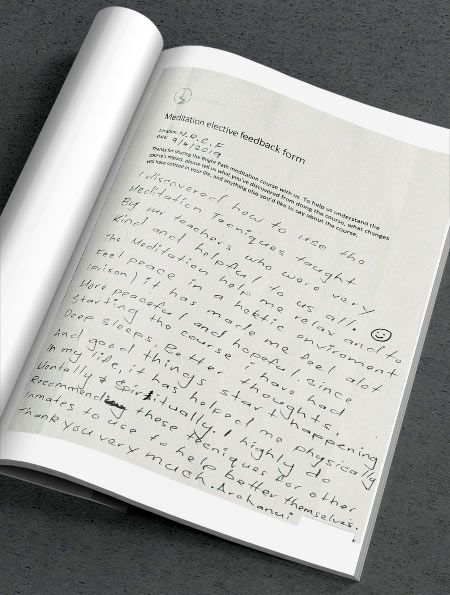 Meditation elective feedback form
Location: N.R.C.F
Date: 9/4/2019
Thanks for sharing the Bright Path meditation course with us. To help us understand the
course's impact, please tell us what you've discovered from doing the course, what changes
you have noticed in your life, and anything else you'd like to say about the course.
I discovered how to use the
Meditation Tecniques taught
By our teachers who were very
Kind and helpful to us all. ☺
The Meditation help me relax and to
Feel peace in a hecktic enviroment
(prison) it has made me feel alot
More peaceful and hopeful. since
Starting the course i have had
Deep sleeps. Better thoughts.
And good things start happening
in my life, it has helped me physically
Mentally & Spiritually. I highly do
Recommend these tecniques for other
inmates to use to help better themselves.
Thank you very much. Arohanui